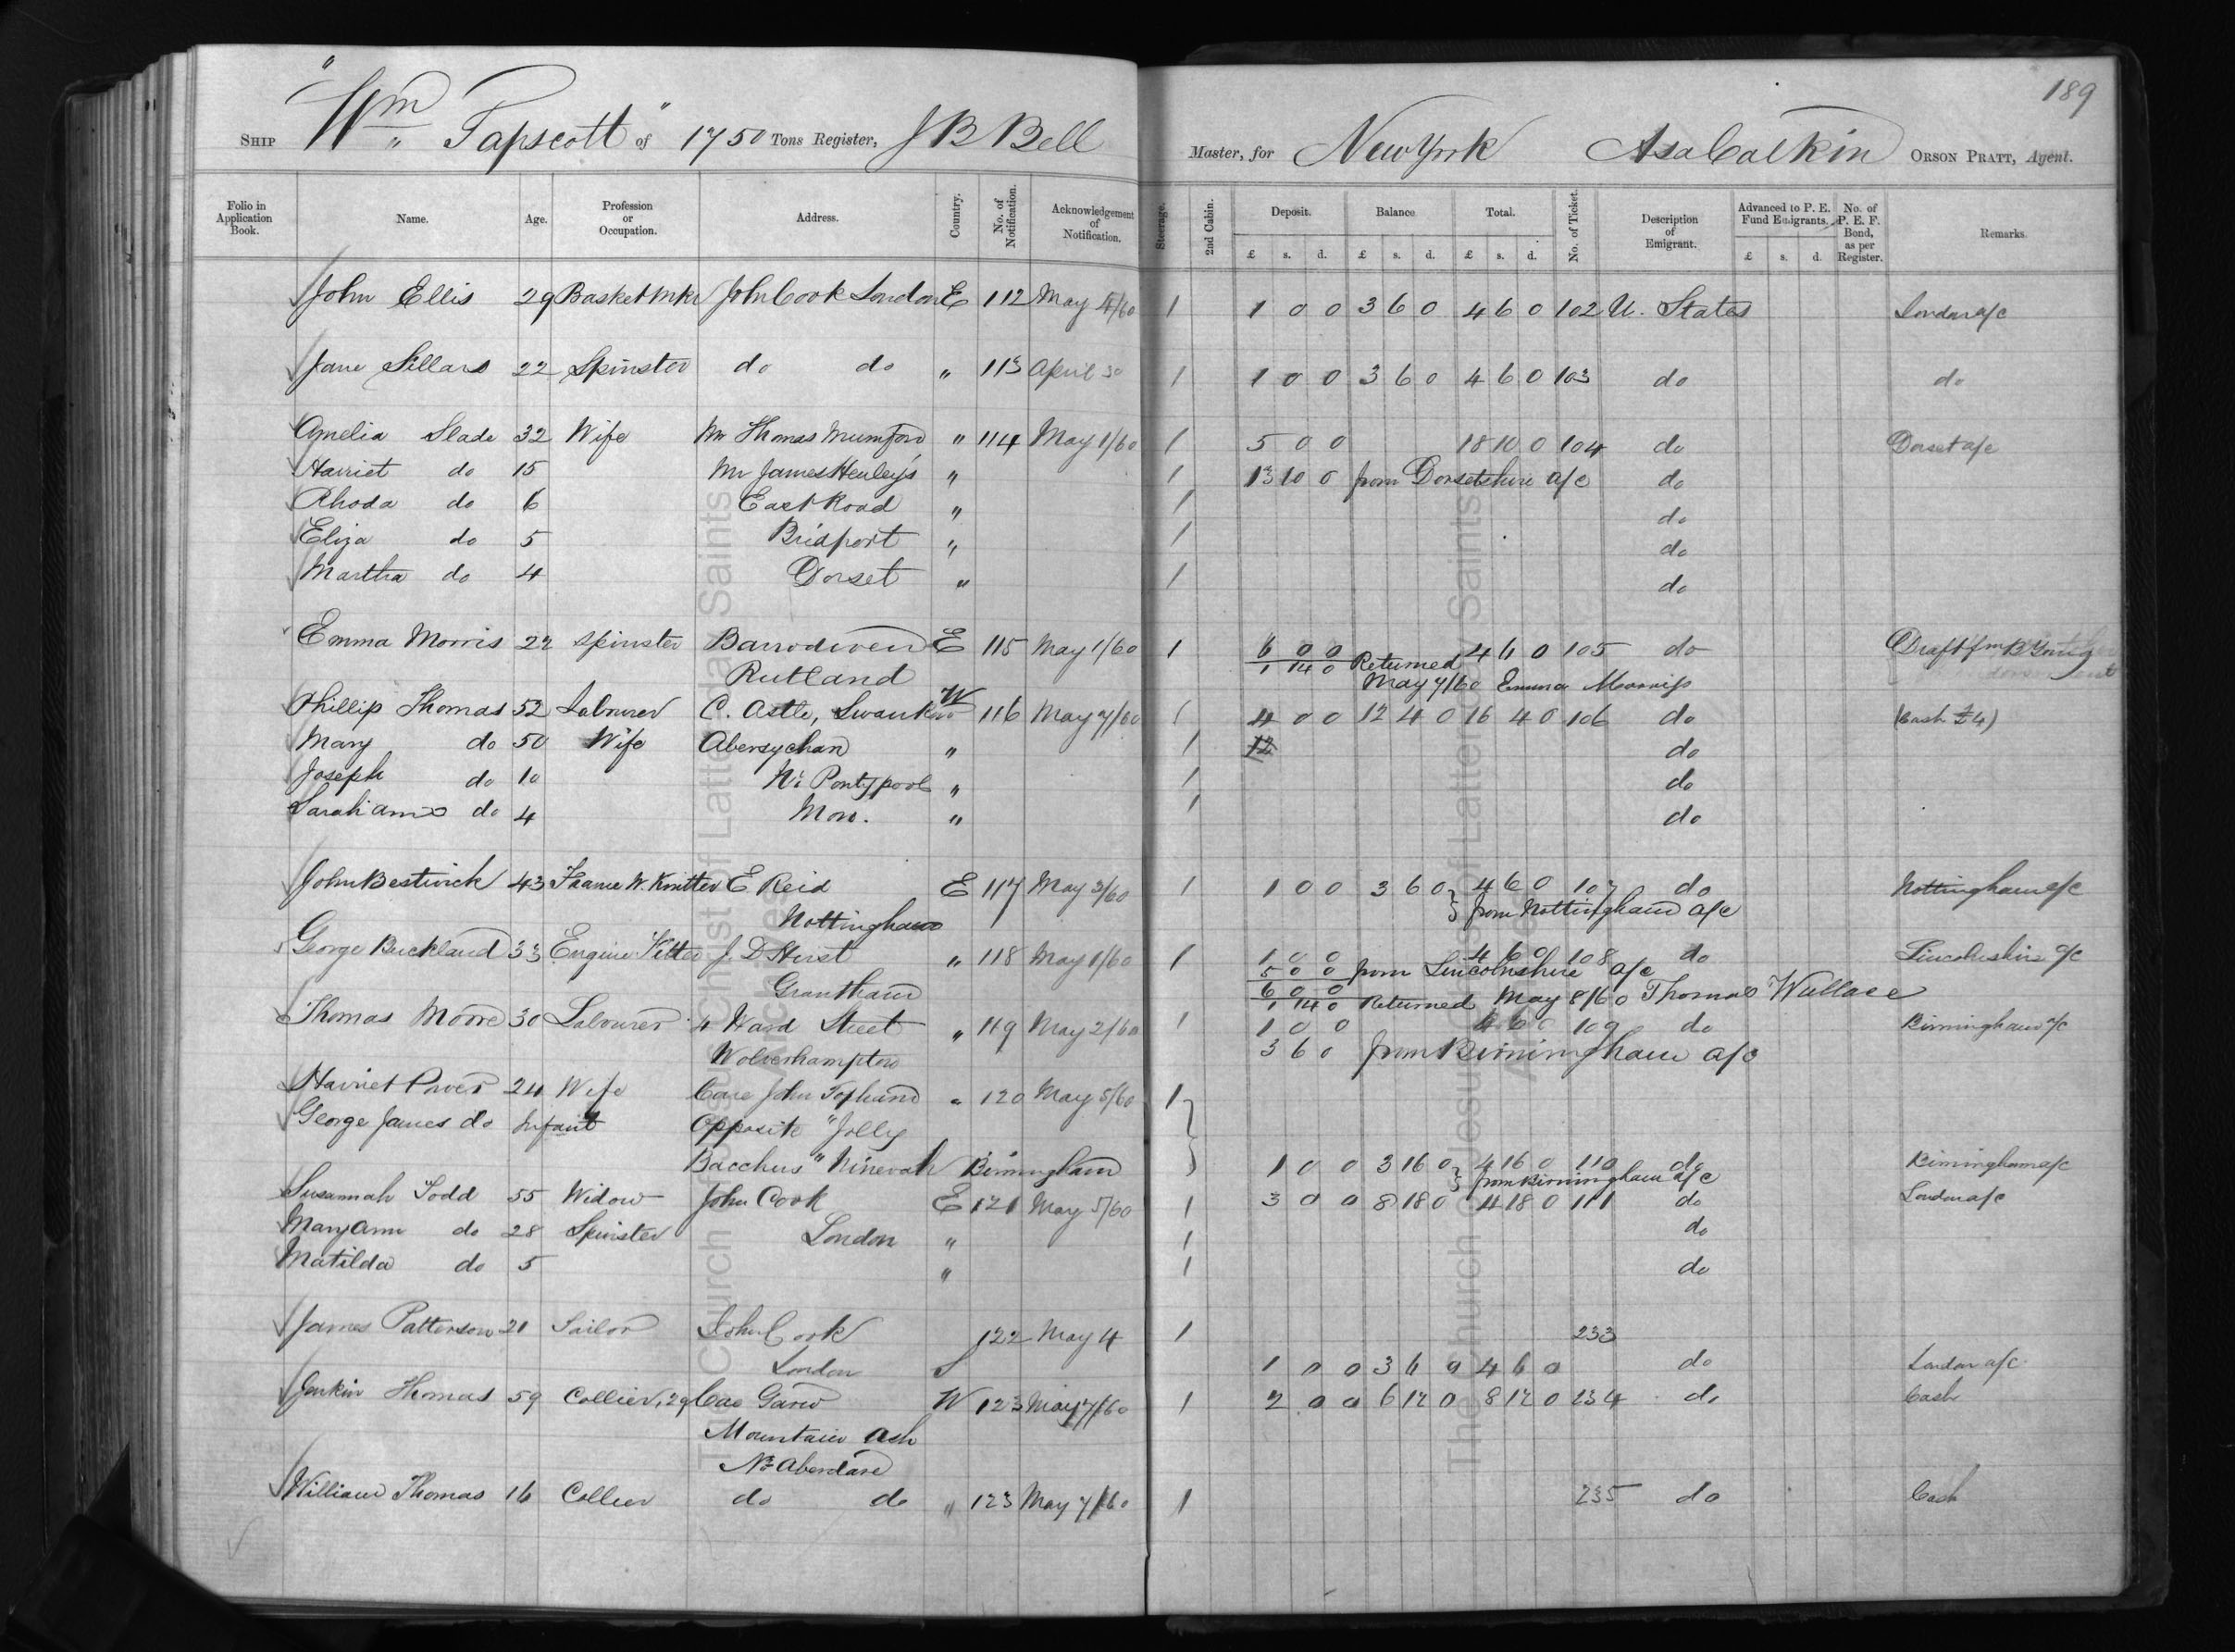 189
Ship "Wm Tapscott" of 1750 Tons Register, J B Bell Master, for New York Asa Calkin Orson Pratt, Agent.
Folio in Application Book. Name. Age. Profession or Occupation. Address. Country. No. of Notification. Acknowledgement of Notification. Steerage. 2nd Cabin. Deposit. Balance Total. No. of Ticket. Description of Emigrant. Advanced to P. E. Fund Emigrants. No. of P. E. F. Bond, as per Register. Remarks.
£ s. d. £ s. d. £ s. d. £ s. d.
John Ellis 29 Basket Mkr John Cook London E 112 May 4/60 1 1 0 0 3 6 0 4 6 0 102 U. States London a/c
Jane Sillars 22 Spinster do do " 113 April 30 1 1 0 0 3 6 0 4 6 0 103 do do
Amelia Slade 32 Wife Mr Thomas Mumford " 114 May 1/60 1 5 0 0 18 10 0 104 do Dorset a/c
Harriet do 15 Mr James Henley's " 1 13 10 0 from Dorsetshire a/c do
Rhoda do 6 East Road " 1 do
Eliza do 5 Bridport " 1 do
Martha do 4 Dorset " 1 do
Emma Morris 22 Spinster Barrodwen E 115 May 1/60 1 6 0 0 4 6 0 105 do Draft fm B
Rutland 1 14 0 Returned
May 7/60 Emma Morriss
Phillip Thomas 52 Labourer C. Astle, W 116 May 7/60 1 4 0 0 12 4 0 16 4 0 106 do (Cash £4)
Mary do 50 Wife Abersychan " 1 12 do
Joseph do 10 Nr Pontypool " 1 do
Sarah Ann do 4 Mon. " 1 do
John Bestwick 43 Frame W. Knitter E Reid E 117 May 3/60 1 1 0 0 3 6 0 4 6 0 107 do Nottingham a/c
Nottingham from Nottingham a/c
George Buckland 33 Engine Fitter J. D Hirst " 118 May 1/60 1 1 0 0 4 6 0 108 do Lincolnshire a/c
5 0 0 from Lincolnshire a/c
Grantham 6 0 0
1 14 0 Returned May 8/60 Thomas Wallace
Thomas Moore 30 Labourer 4 Ward Street " 119 May 2/60 1 1 0 0 4 6 0 109 do Birmingham a/c
Wolverhampton 3 6 0 from Birmingham a/c
Harriet 24 Wife Care John Topham " 120 May 5/60 1
George James do Infant Opposite "Jolly
Bacchus" Ninevah Birmingham 1 0 0 3 16 0 4 16 0 110 do Birmingham a/c
from Birmingham a/c
Susannah Todd 55 Widow John Cook E 121 May 5/60 1 3 0 0 8 18 0 4 18 0 111 do London a/c
Mary Ann do 28 Spinster London " 1 do
Matilda do 5 " 1 do
James Patterson 21 Sailor John Cook 122 May 4 1 233
London S 1 0 0 3 6 0 4 6 0 do London a/c
Jenkin Thomas 59 Collier, 29 Cae Garw W 123 May 7/60 1 2 0 0 6 12 0 8 12 0 234 do Cash
Mountain Ash
Nr Aberdare
William Thomas 16 Collier do do " 123 May 7/60 1 235 do Cash